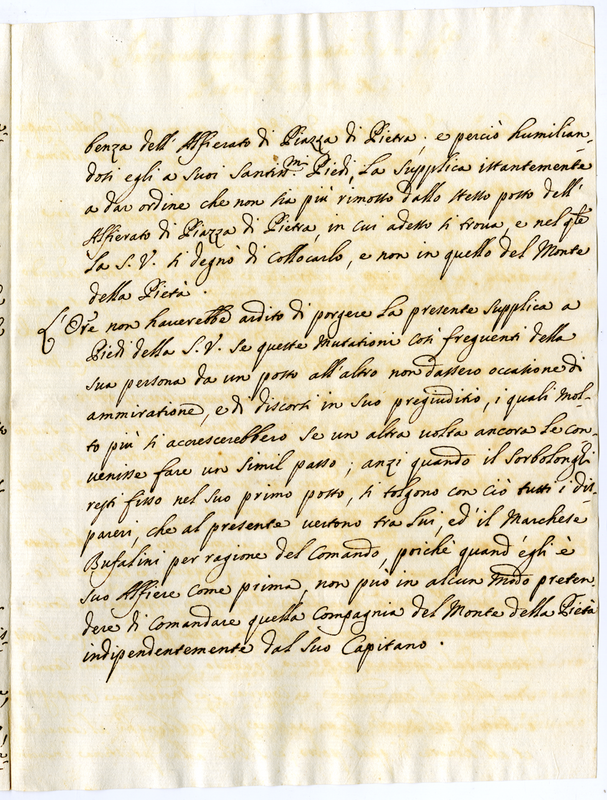 benza dell' Alfierato di Piazza di Pietra; e perciò humilian-
dosi egli a suoi Santis.mi Piedi, La supplica istantemente
a dar ordine che non sia più rimosso dallo stesso posto dell'
Alfierato di Piazza di Pietra, in cui adesso si trova, e nel q.le
La S. V. si degnò di collocarlo, e non in quello del Monte
della Pietà.
L' Ore non haverebbe ardito di porgere la presente supplica a
Piedi della S. V. se queste mutationi così frequenti della
sua persona da un posto all' altro non dassero occasione di
ammiratione, e di discorsi in suo pregiuditio, i quali mol-
to più si accrescerebbero se un altra volta ancora le con-
venisse fare un simil passo; anzi quando il Sorbolonghi
resti fisso nel suo primo posto, si tolgono con ciò tutti i dis-
pareri, che al presente vertono tra lui, ed' il Marchese
Bufalini per ragione del Comando, poiché quand' egli è
suo Alfiere come prima, non può in alcun modo preten-
dere di comandare quella Compagnia del Monte della Pietà
indipendentemente dal suo Capitano.